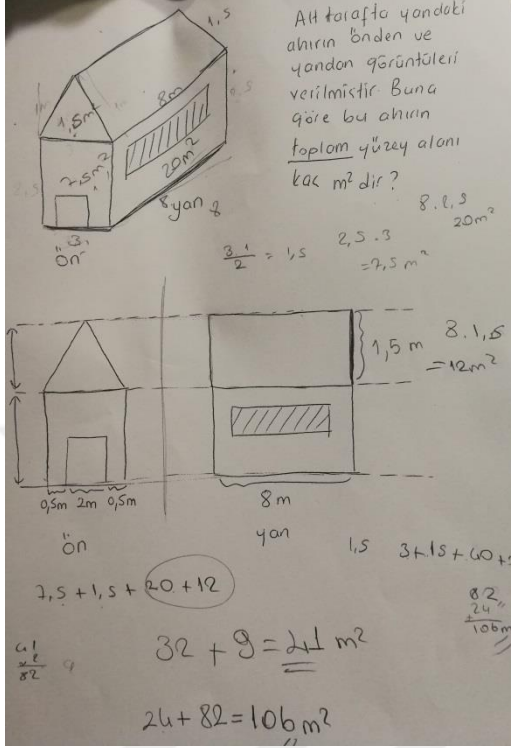 Alt tarafta yandaki
ahırın önden ve
yandan görüntüleri
verilmiştir. Buna
göre bu ahırın
toplam yüzey alanı
kaç m² dir?
1,5
8m
1,5m²
7,5m²
20m²
8 yan 8
3
Ön
8.2,5
20m²
3.1
2
= 1,5
2,5.3
=7,5 m²
1,5 m
8.1,5
=12m²
0,5m 2m 0,5m
8m
ön
yan
1,5
3+15+40+
7,5+1,5+20+12
82
24
+
106m
41
x2
82
9
32+9=41 m²
24+82=106m²